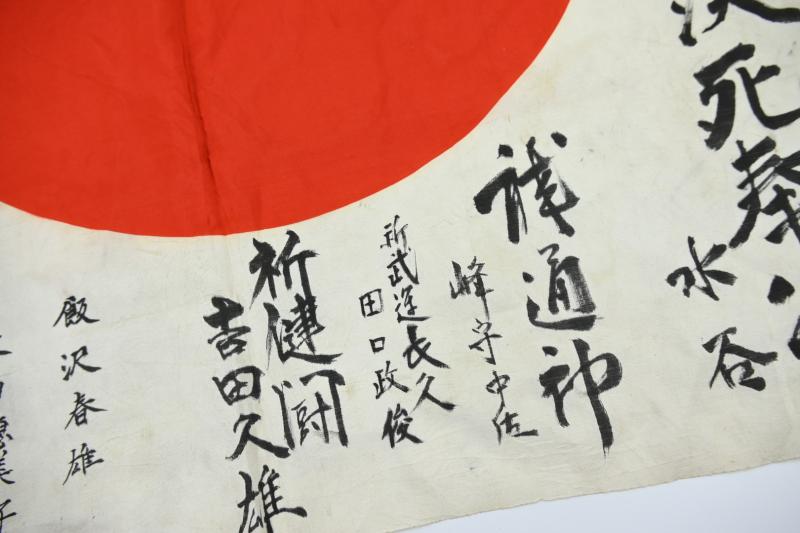 決死奉公
水谷
誠通神
峰守中佐
祈武運長久
田口政俊
祈健闘
吉田久雄
飯沢春雄